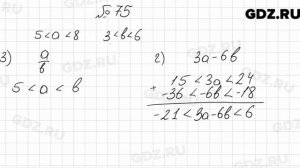 GDZ.RU
№ 75
5 < a < 8 3 < b < 6
3) a/b
5 < a < b
г) 3a-6b
15 < 3a < 24
+ -36 < -6b < -18
-21 < 3a-6b < 6
GDZ.RU